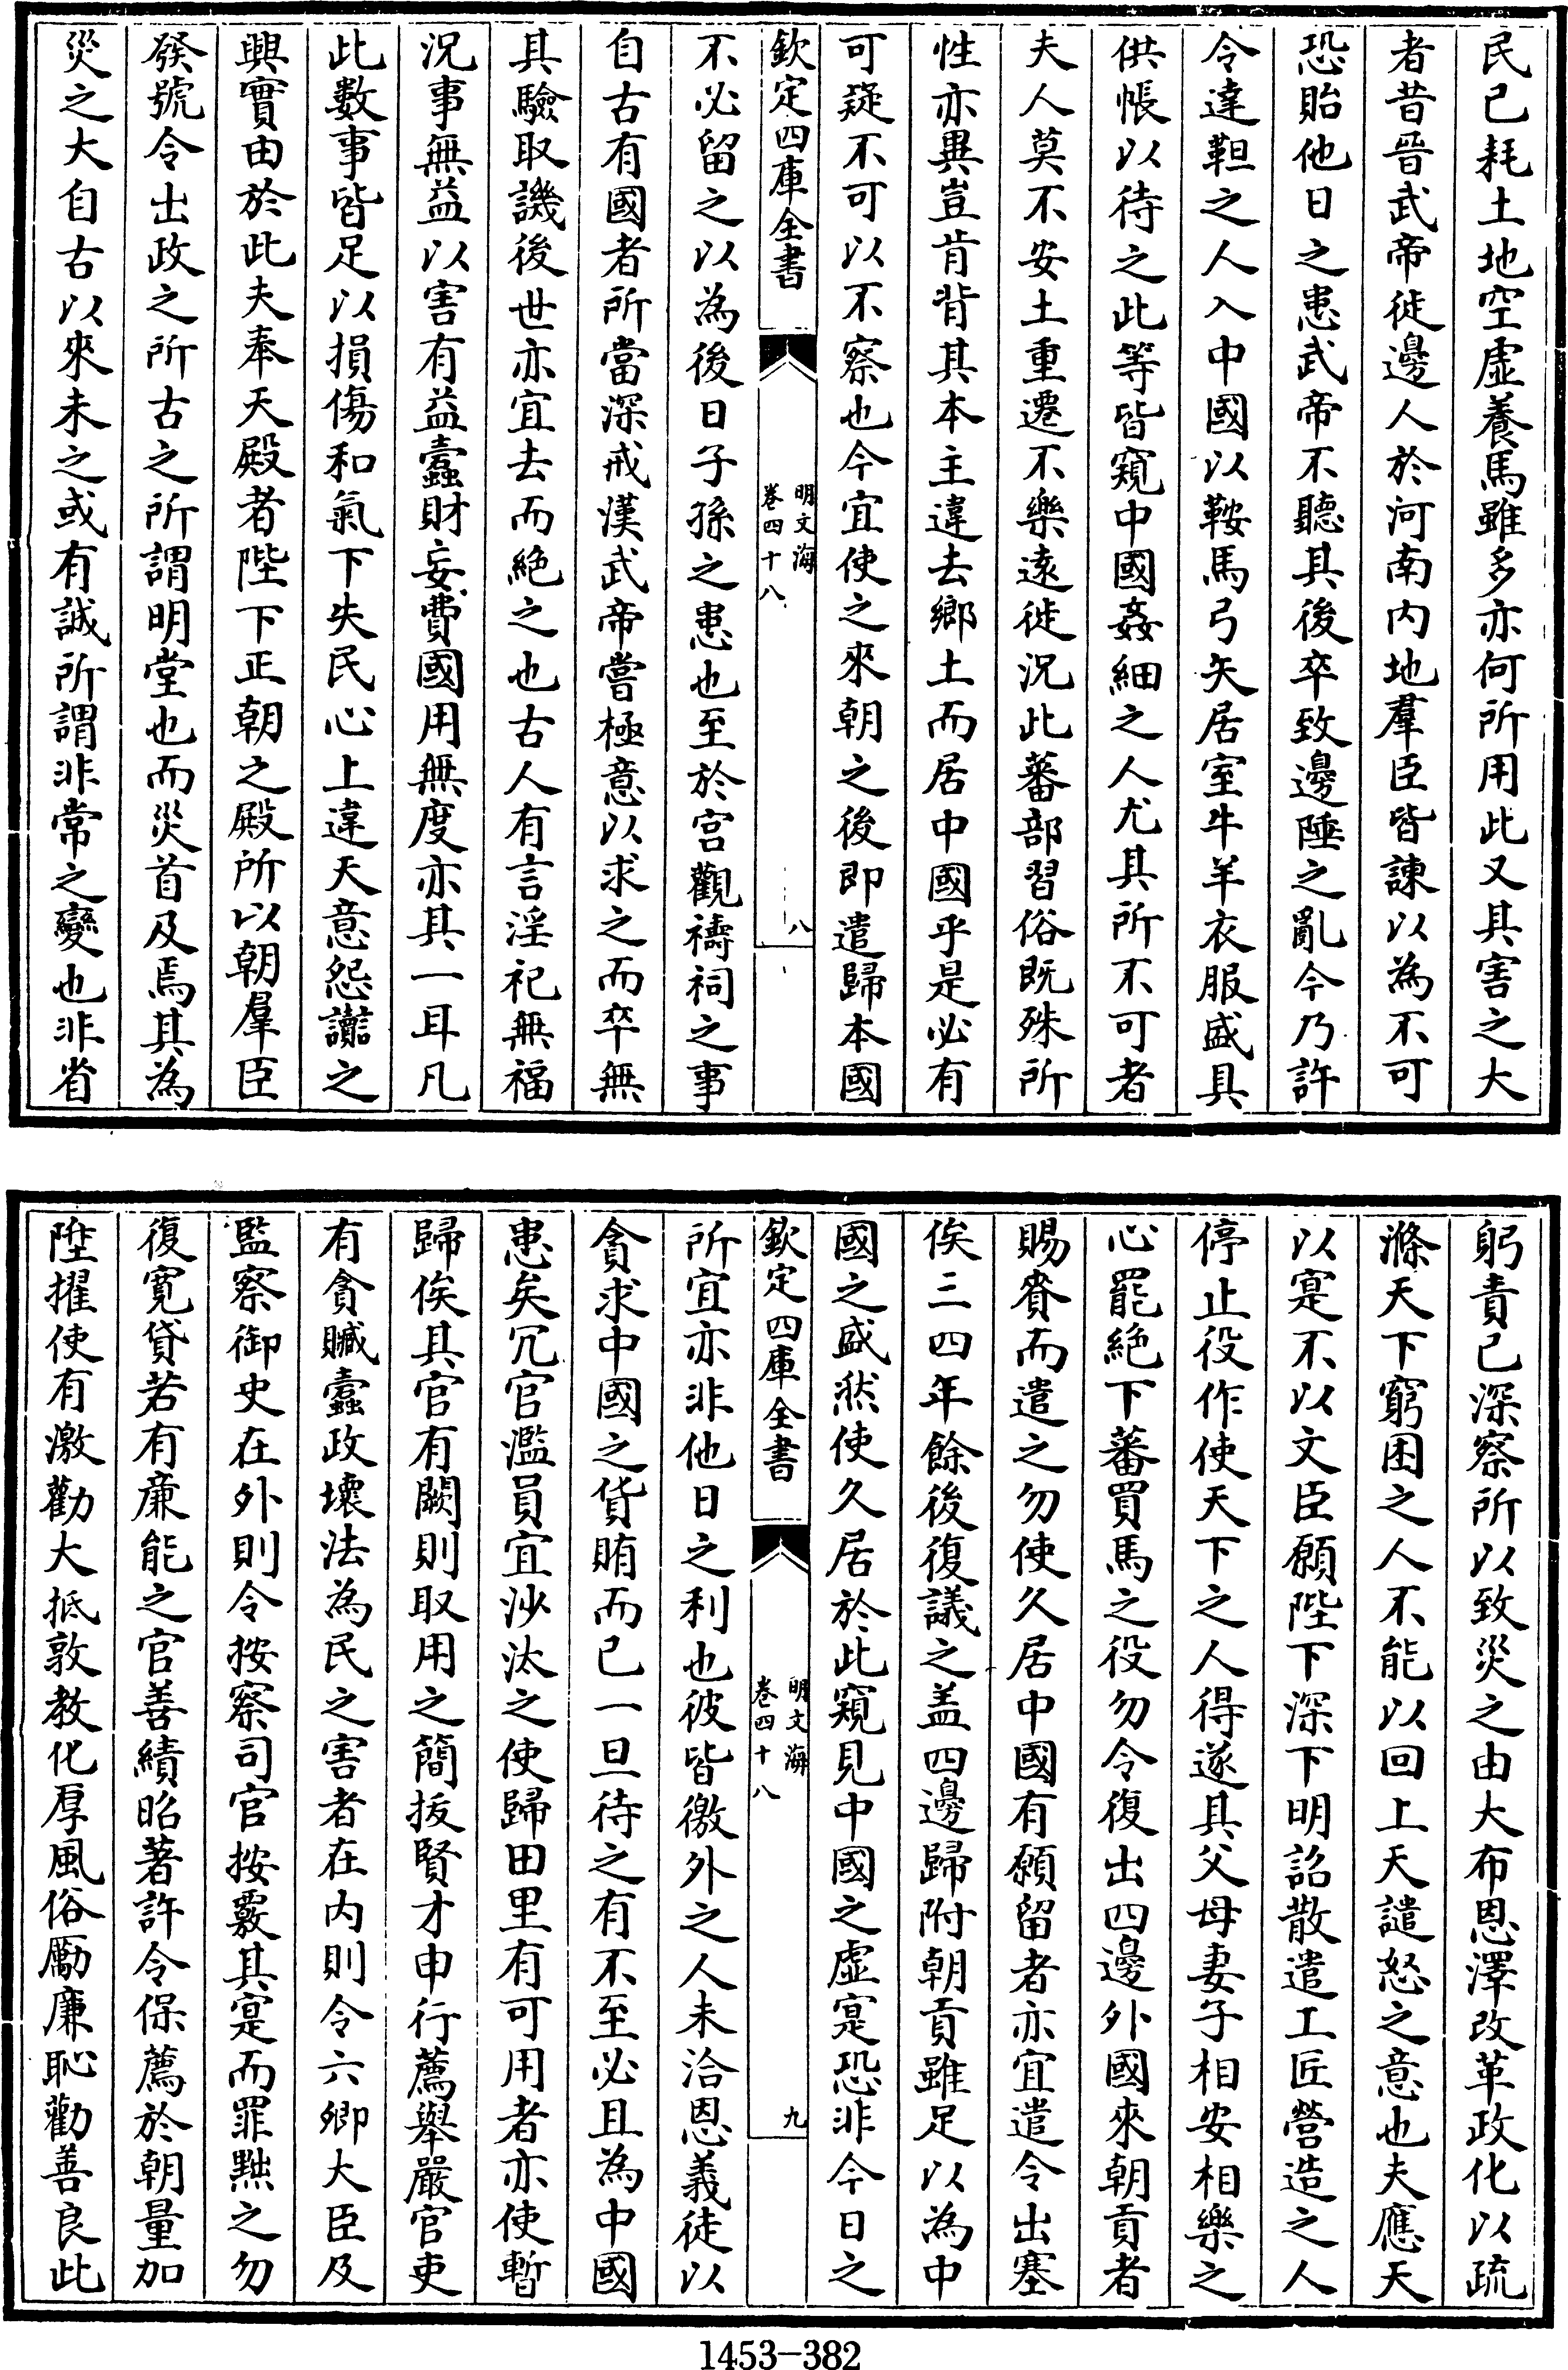 民已耗土地空虛養馬雖多亦何所用此又其害之大
者昔晉武帝徙邊人於河南内地羣臣皆諫以為不可
恐貽他日之患武帝不聽其後卒致邊陲之亂今乃許
令達靼之人入中國以鞍馬弓矢居室牛羊衣服盛具
供帳以待之此等皆窺中國姦細之人尤其所不可者
夫人莫不安土重遷不樂逺徙況此蕃部習俗既殊所
性亦異豈肯背其本主違去鄉土而居中國乎是必有
可疑不可以不察也今宜使之來朝之後即遣歸本國
欽定四庫全書
明文海
卷四十八
八
不必留之以為後日子孫之患也至於宮觀禱祠之事
自古有國者所當深戒漢武帝嘗極意以求之而卒無
其驗取譏後世亦宜去而絶之也古人有言淫祀無福
況事無益以害有益蠹財妄費國用無度亦其一耳凡
此數事皆足以損傷和氣下失民心上違天意怨讟之
興實由於此夫奉天殿者陛下正朝之殿所以朝羣臣
發號令出政之所古之所謂明堂也而災首及焉其為
災之大自古以來未之或有誠所謂非常之變也非省
躬責已深察所以致災之由大布恩澤改革政化以疏
滌天下窮困之人不能以回上天譴怒之意也夫應天
以寔不以文臣願陛下深下明詔散遣工匠營造之人
停止役作使天下之人得遂其父母妻子相安相樂之
心罷絶下蕃買馬之役勿令復出四邊外國來朝貢者
賜賚而遣之勿使久居中國有願留者亦宜遣令出塞
俟三四年餘後復議之盖四邊歸附朝貢雖足以為中
國之盛然使久居於此窺見中國之虛寔恐非今日之
欽定四庫全書
明文海
卷四十八
九
所宜亦非他日之利也彼皆徼外之人未洽恩義徒以
貪求中國之貨賄而已一旦待之有不至必且為中國
患矣冗官濫員宜沙汰之使歸田里有可用者亦使暫
歸俟其官有闕則取用之簡拔賢才申行薦舉嚴官吏
有貪贓蠹政壞法為民之害者在内則令六卿大臣及
監察御史在外則令按察司官按覈其寔而罪黜之勿
復寛貸若有廉能之官善績昭著許令保薦於朝量加
陞擢使有激勸大抵敦教化厚風俗勵廉恥勸善良此
1453-382